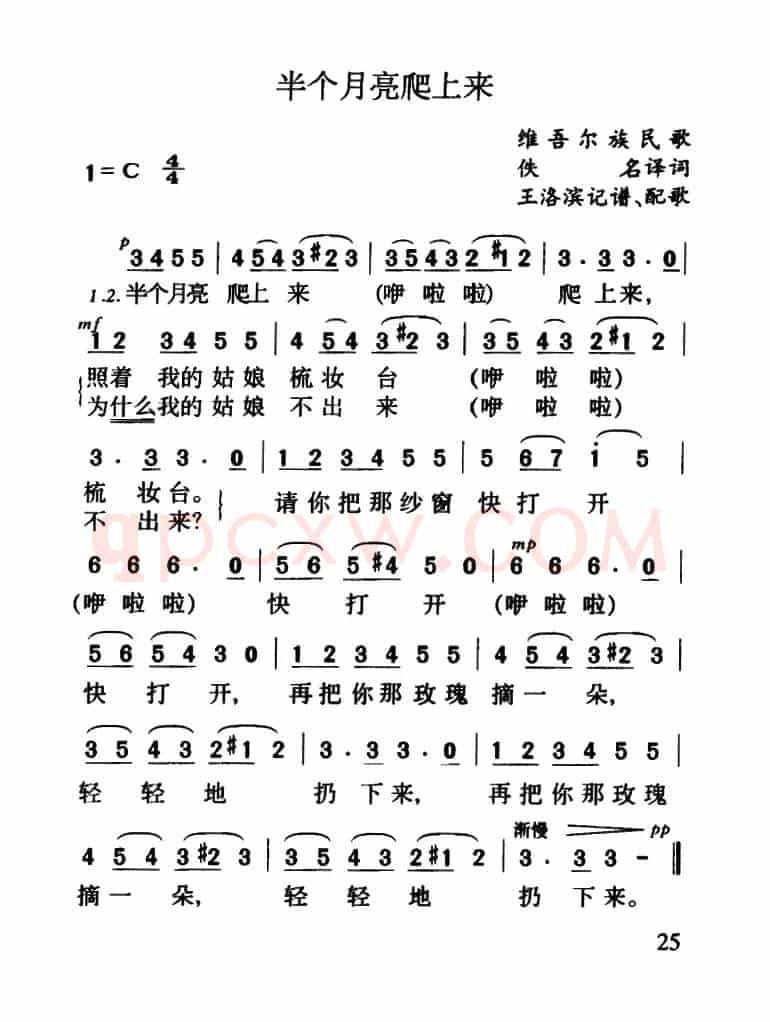 半个月亮爬上来
维吾尔族民歌
1=C 4/4 佚 名译词
王洛滨记谱、配歌
p 3455 | 4543#23 | 35432#12 | 3·33·0 |
1.2.半个月亮 爬上 来 (咿 啦 啦) 爬 上来,
mf 12 34 55 | 4 54 3#2 3 | 35 43 2#1 2 |
照着 我的 姑娘 梳妆 台 (咿 啦 啦)
为什么我的 姑娘 不出 来 (咿 啦 啦)
3·3 3·0 | 12 34 5 5 | 5 67 i 5 |
梳 妆台。 请你把那纱窗 快打 开
不 出来?
6 6 6·0 | 56 5#4 50 | mp 6 6 6·0 |
(咿 啦 啦) 快 打 开 (咿 啦 啦)
56 54 30 | 12 34 55 | 4 54 3#2 3 |
快 打 开, 再把你那玫瑰 摘一 朵,
35 43 2#1 2 | 3·3 3·0 | 12 34 55 |
轻 轻 地 扔 下来, 再把你那玫瑰
渐慢 pp
4 54 3#2 3 | 35 43 2#1 2 | 3·3 3 - ‖
摘一 朵, 轻 轻 地 扔 下来。
qpcxw.COM
25